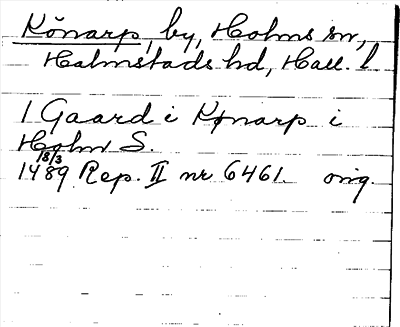 Könarp, by, Holms sn,
Halmstads hd, Hall. l
1 Gaard i Kønarp i
Holm S.
18/3
1489 Rep. II nr 6461. orig.